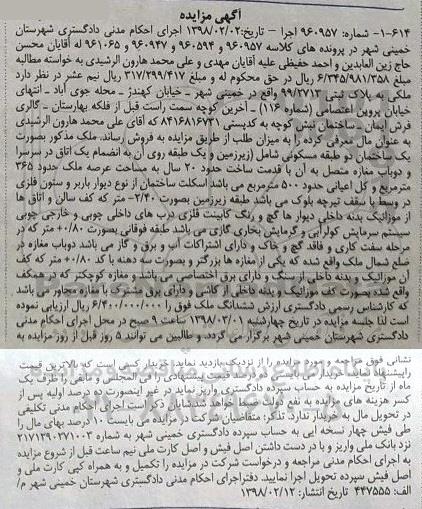 آگهی مزایده
۶۱۴-۱- شماره: ۹۶۰۹۵۷ اجرا – تاریخ:۱۳۹۸/۰۲/۰۲ اجرای احکام مدنی دادگستری شهرستان
خمینی شهر در پرونده های کلاسه ۹۶۰۹۵۷ و ۹۶۰۵۹۴ و ۹۶۰۹۴۷ و ۹۶۱۰۶۵ له آقایان محسن
حاج زین العابدین و احمد حفیظی علیه آقایان مهدی و علی محمد هارون الرشیدی به خواسته مطالبه
مبلغ ۶/۳۴۵/۹۸۱/۳۵۸ ریال در حق محکوم له و مبلغ ۳۱۷/۲۹۹/۴۱۷ ریال نیم عشر در نظر دارد
ملکی به پلاک ثبتی ۹۹/۲۷۱۳ واقع در خمینی شهر – خیابان کهندژ – محله جوی آباد – انتهای
خیابان پروین اعتصامی (شماره ۱۱۶) – آخرین کوچه سمت راست قبل از فلکه بهارستان – گالری
فرش ایمان – ساختمان نبش کوچه به کدپستی ۸۴۱۶۸۱۶۷۳۱ که آقای علی محمد هارون الرشیدی
به عنوان مال معرفی کرده را به میزان طلب از طریق مزایده به فروش رساند. ملک مذکور بصورت
یک ساختمان دو طبقه مسکونی شامل (زیرزمین و یک طبقه روی آن به انضمام یک اتاق در سرسرا
و دوباب مغازه متصل به آن با قدمت ساخت حدود ۲۰ سال به مساحت عرصه ملک حدود ۳۶۵
مترمربع و کل اعیانی حدود ۵۰۰ مترمربع می باشد اسکلت ساختمان از نوع دیوار باربر و ستون فلزی
در وسط با سقف تیرچه بلوک می باشد طبقه زیرزمین بصورت ۲/۴۰- متر که کف سالن و اتاق ها
از موزائیک بدنه داخلی دیوار ها گچ و رنگ کابینت فلزی درب های داخلی چوبی و خارجی چوبی
سیستم سرمایش کولرآبی و گرمایش بخاری گازی می باشد طبقه فوقانی بصورت ۰/۸۰+ متر که در
مرحله سفت کاری و فاقد گچ و خاک و دارای اشتراکات آب و برق و گاز می باشد دوباب مغازه در
ضلع شمال ملک واقع شده که یکی از مغازه ها بزرگتر و بصورت سه دهنه با کد ۰/۸۰+ متر که کف
آن موزائیک و بدنه داخلی از سنگ و دارای برق اختصاصی می باشد و مغازه کوچکتر که در همکف
واقع شده بصورت کف موزائیک و بدنه داخلی از کاشی و دارای برق مشترک با مغازه مجاور می باشد
که کارشناس رسمی دادگستری ارزش ششدانگ ملک فوق را ۶/۴۰۰/۰۰۰/۰۰۰ ریال ارزیابی نموده
است لذا جلسه مزایده در تاریخ چهارشنبه ۱۳۹۸/۰۳/۰۱ ساعت ۹ صبح در محل اجرای احکام مدنی
دادگستری شهرستان خمینی شهر برگزار می گردد. و طالبین می توانند ۵ روز قبل از روز مزایده به
نشانی فوق مراجعه و مورد مزایده را از نزدیک بازدید نماید. خریدار کسی است که بالاترین قیمت
را پیشنهاد نماید. خریدار باید ده درصد قیمت پیشنهادی را فی المجلس و مابقی را ظرف یک
ماه از تاریخ مزایده به حساب سپرده دادگستری واریز نماید در غیر اینصورت ده درصد اولیه پس از
کسر هزینه های مزایده به نفع دولت ضبط خواهد شد. بدیهی است اجرای احکام مدنی تکلیفی
در تحویل مال به خریدار ندارد. تذکر: متقاضیان شرکت در مزایده می بایست ۱۰ درصد بهای مال را
طی فیش چهار نسخه ایی به حساب سپرده دادگستری خمینی شهر به شماره ۲۱۷۱۲۹۰۲۷۱۰۰۳
نزد بانک ملی واریز و با در دست داشتن اصل فیش و اصل کارت ملی نیم ساعت قبل از شروع مزایده
به اجرای احکام مدنی مراجعه و درخواست شرکت در مزایده را تکمیل و به همراه کپی کارت ملی و
اصل فیش سپرده تحویل اجرا نمایید. دفتراجرای احکام مدنی دادگستری شهرستان خمینی شهر م/
الف: ۴۴۷۵۵۵ تاریخ انتشار: ۱۳۹۸/۰۲/۱۲